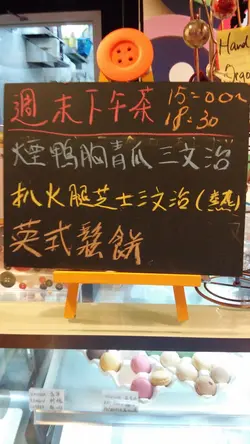 週末下午茶 15:00~
18:30
煙鴨胸青瓜三文治
扒火腿芝士三文治(熱)
英式鬆餅
Hand